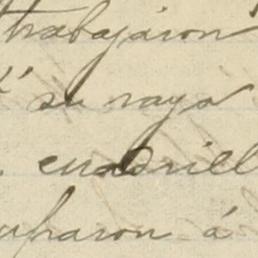 trabajáron
su raya
cuadrill
uparon á